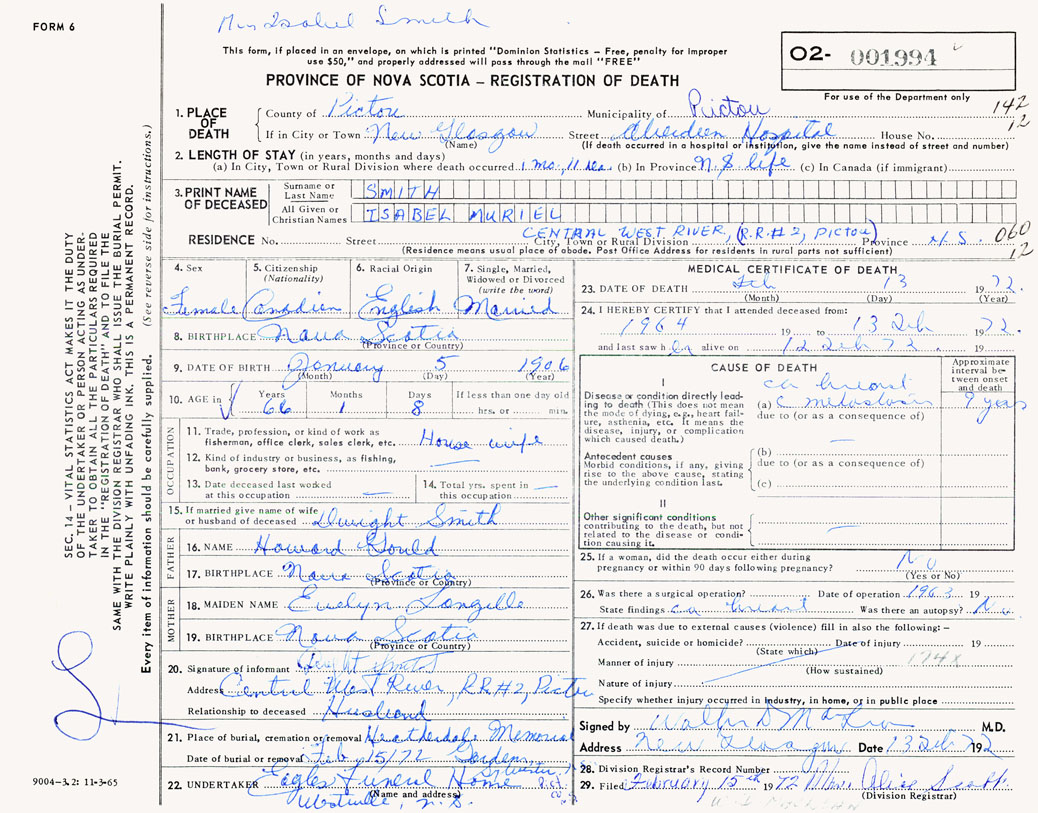 FORM 6
Mrs Isabel Smith
This form, if placed in an envelope, on which is printed "Dominion Statistics – Free, penalty for improper
use $50," and properly addressed will pass through the mail "FREE"
PROVINCE OF NOVA SCOTIA – REGISTRATION OF DEATH
O2- 001994
For use of the Department only
142
12
1. PLACE OF DEATH
County of Pictou Municipality of Pictou
If in City or Town New Glasgow Street Aberdeen Hospital House No.
(Name) (If death occurred in a hospital or institution, give the name instead of street and number)
2. LENGTH OF STAY (in years, months and days)
(a) In City, Town or Rural Division where death occurred 1 mo, 11 das (b) In Province N.S life (c) In Canada (if immigrant)
3. PRINT NAME OF DECEASED
Surname or Last Name SMITH
All Given or Christian Names ISABEL MURIEL
CENTRAL WEST RIVER, (R.R.#2, PICTOU)
RESIDENCE No. Street City, Town or Rural Division Province N.S. 060
12
(Residence means usual place of abode. Post Office Address for residents in rural parts not sufficient)
4. Sex
Female
5. Citizenship
(Nationality)
Canadian
6. Racial Origin
English
7. Single, Married,
Widowed or Divorced
(write the word)
Married
8. BIRTHPLACE Nova Scotia
(Province or Country)
9. DATE OF BIRTH January 5 1906
(Month) (Day) (Year)
10. AGE in Years Months Days If less than one day old
66 1 8 hrs. or min.
OCCUPATION
11. Trade, profession, or kind of work as
fisherman, office clerk, sales clerk, etc. House wife
12. Kind of industry or business, as fishing,
bank, grocery store, etc. —
13. Date deceased last worked
at this occupation —
14. Total yrs. spent in
this occupation —
15. If married give name of wife
or husband of deceased Dwight Smith
FATHER
16. NAME Howard Gould
17. BIRTHPLACE Nova Scotia
(Province or Country)
MOTHER
18. MAIDEN NAME Evelyn Langille
19. BIRTHPLACE Nova Scotia
(Province or Country)
20. Signature of informant
Address Central West River, RR#2, Pictou
Relationship to deceased Husband
21. Place of burial, cremation or removal Heatherdale Memorial
Date of burial or removal Feb 15/72 Gardens
22. UNDERTAKER Eagles Funeral Home
(Name and address)
Westville, N.S.
MEDICAL CERTIFICATE OF DEATH
23. DATE OF DEATH Feb 13 1972.
(Month) (Day) (Year)
24. I HEREBY CERTIFY that I attended deceased from:
1964 19 to 13 Feb 1972.
and last saw her alive on 12 Feb 72. 19
CAUSE OF DEATH
Approximate
interval be-
tween onset
and death
I
Disease or condition directly lead-
ing to death (This does not mean
the mode of dying, e.g., heart fail-
ure, asthenia, etc. It means the
disease, injury, or complication
which caused death.)
ca breast
(a) c metastasis 9 years
due to (or as a consequence of)
—
Antecedent causes
Morbid conditions, if any, giving
rise to the above cause, stating
the underlying condition last.
(b)
due to (or as a consequence of)
(c)
II
Other significant conditions
contributing to the death, but not
related to the disease or condi-
tion causing it.
—
25. If a woman, did the death occur either during
pregnancy or within 90 days following pregnancy? No
(Yes or No)
26. Was there a surgical operation? Date of operation 1963 19
State findings ca breast Was there an autopsy? No
27. If death was due to external causes (violence) fill in also the following: –
Accident, suicide or homicide? Date of injury 19
(State which)
Manner of injury 174X
(How sustained)
Nature of injury
Specify whether injury occurred in industry, in home, or in public place
Signed by M.D.
Address New Glasgow Date 13 Feb 1972
28. Division Registrar's Record Number
29. Filed February 15th 1972 Mrs. Alice Scott
(Division Registrar)
SEC. 14 – VITAL STATISTICS ACT MAKES IT THE DUTY
OF THE UNDERTAKER OR PERSON ACTING AS UNDER-
TAKER TO OBTAIN ALL THE PARTICULARS REQUIRED
IN THE "REGISTRATION OF DEATH" AND TO FILE THE
SAME WITH THE DIVISION REGISTRAR WHO SHALL ISSUE THE BURIAL PERMIT.
WRITE PLAINLY WITH UNFADING INK. THIS IS A PERMANENT RECORD.
Every item of information should be carefully supplied. (See reverse side for instructions.)
9004-3.2: 11-3-65